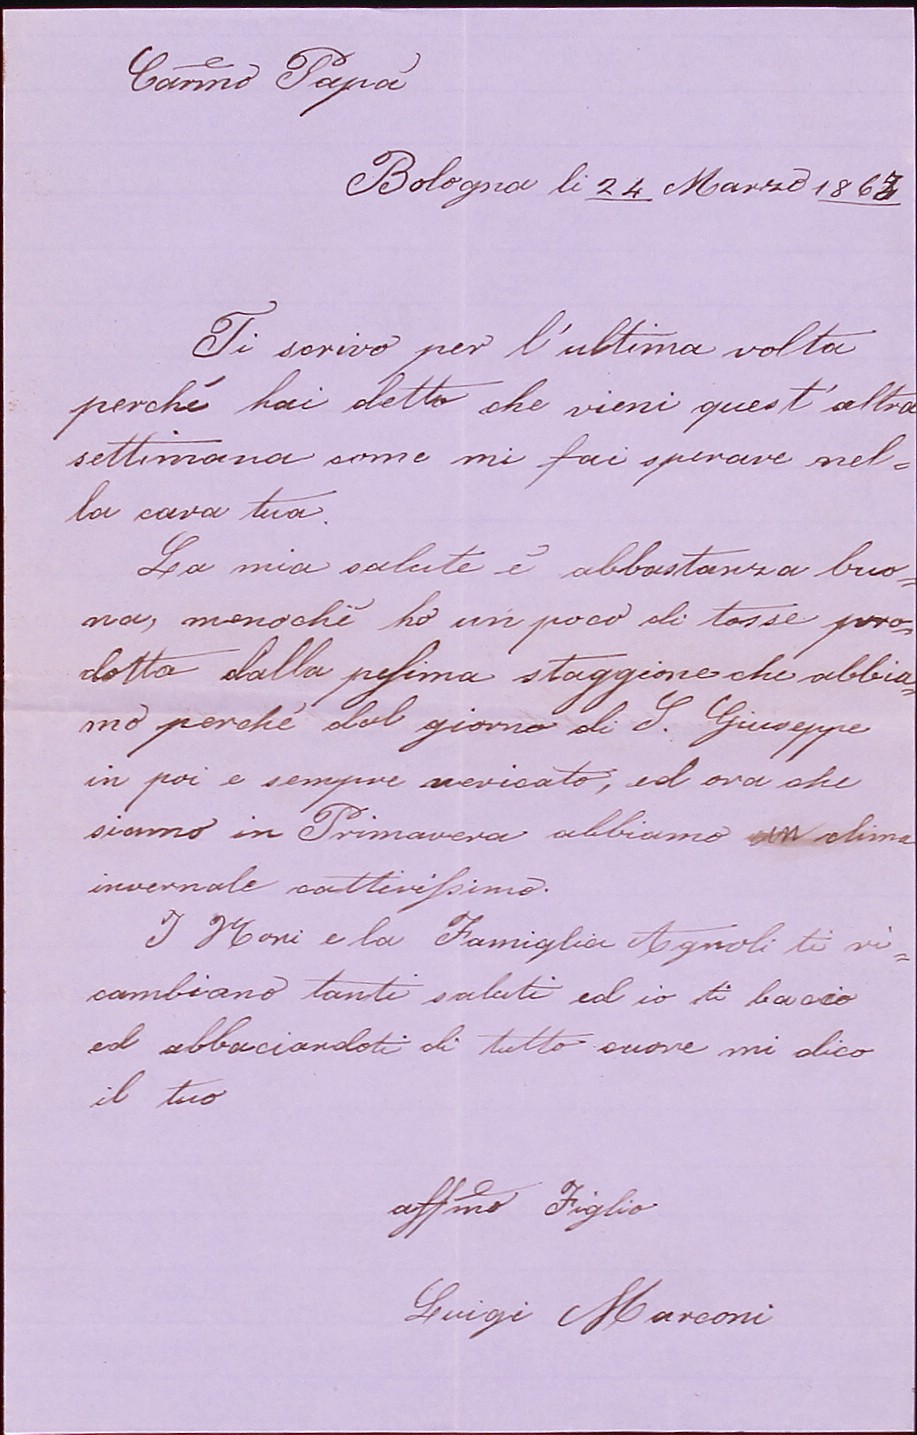 Carmo Papà
Bologna li 24 Marzo 1867
Ti scrivo per l'ultima volta
perché hai detto che vieni quest'altra
settimana come mi fai sperare nel=
la cara tua.
La mia salute è abbastanza buo=
na, menochè ho un poco di tosse pro=
dotta dalla pessima staggione che abbia=
mo perché dal giorno di S. Giuseppe
in poi e sempre nevicato, ed ora che
siamo in Primavera abbiamo un clima
invernale cattivissimo.
I Moni e la Famiglia Agnoli ti ri=
cambiano tanti saluti ed io ti bacio
ed abbaciandoti di tutto cuore mi dico
il tuo
affmo Figlio
Luigi Marconi